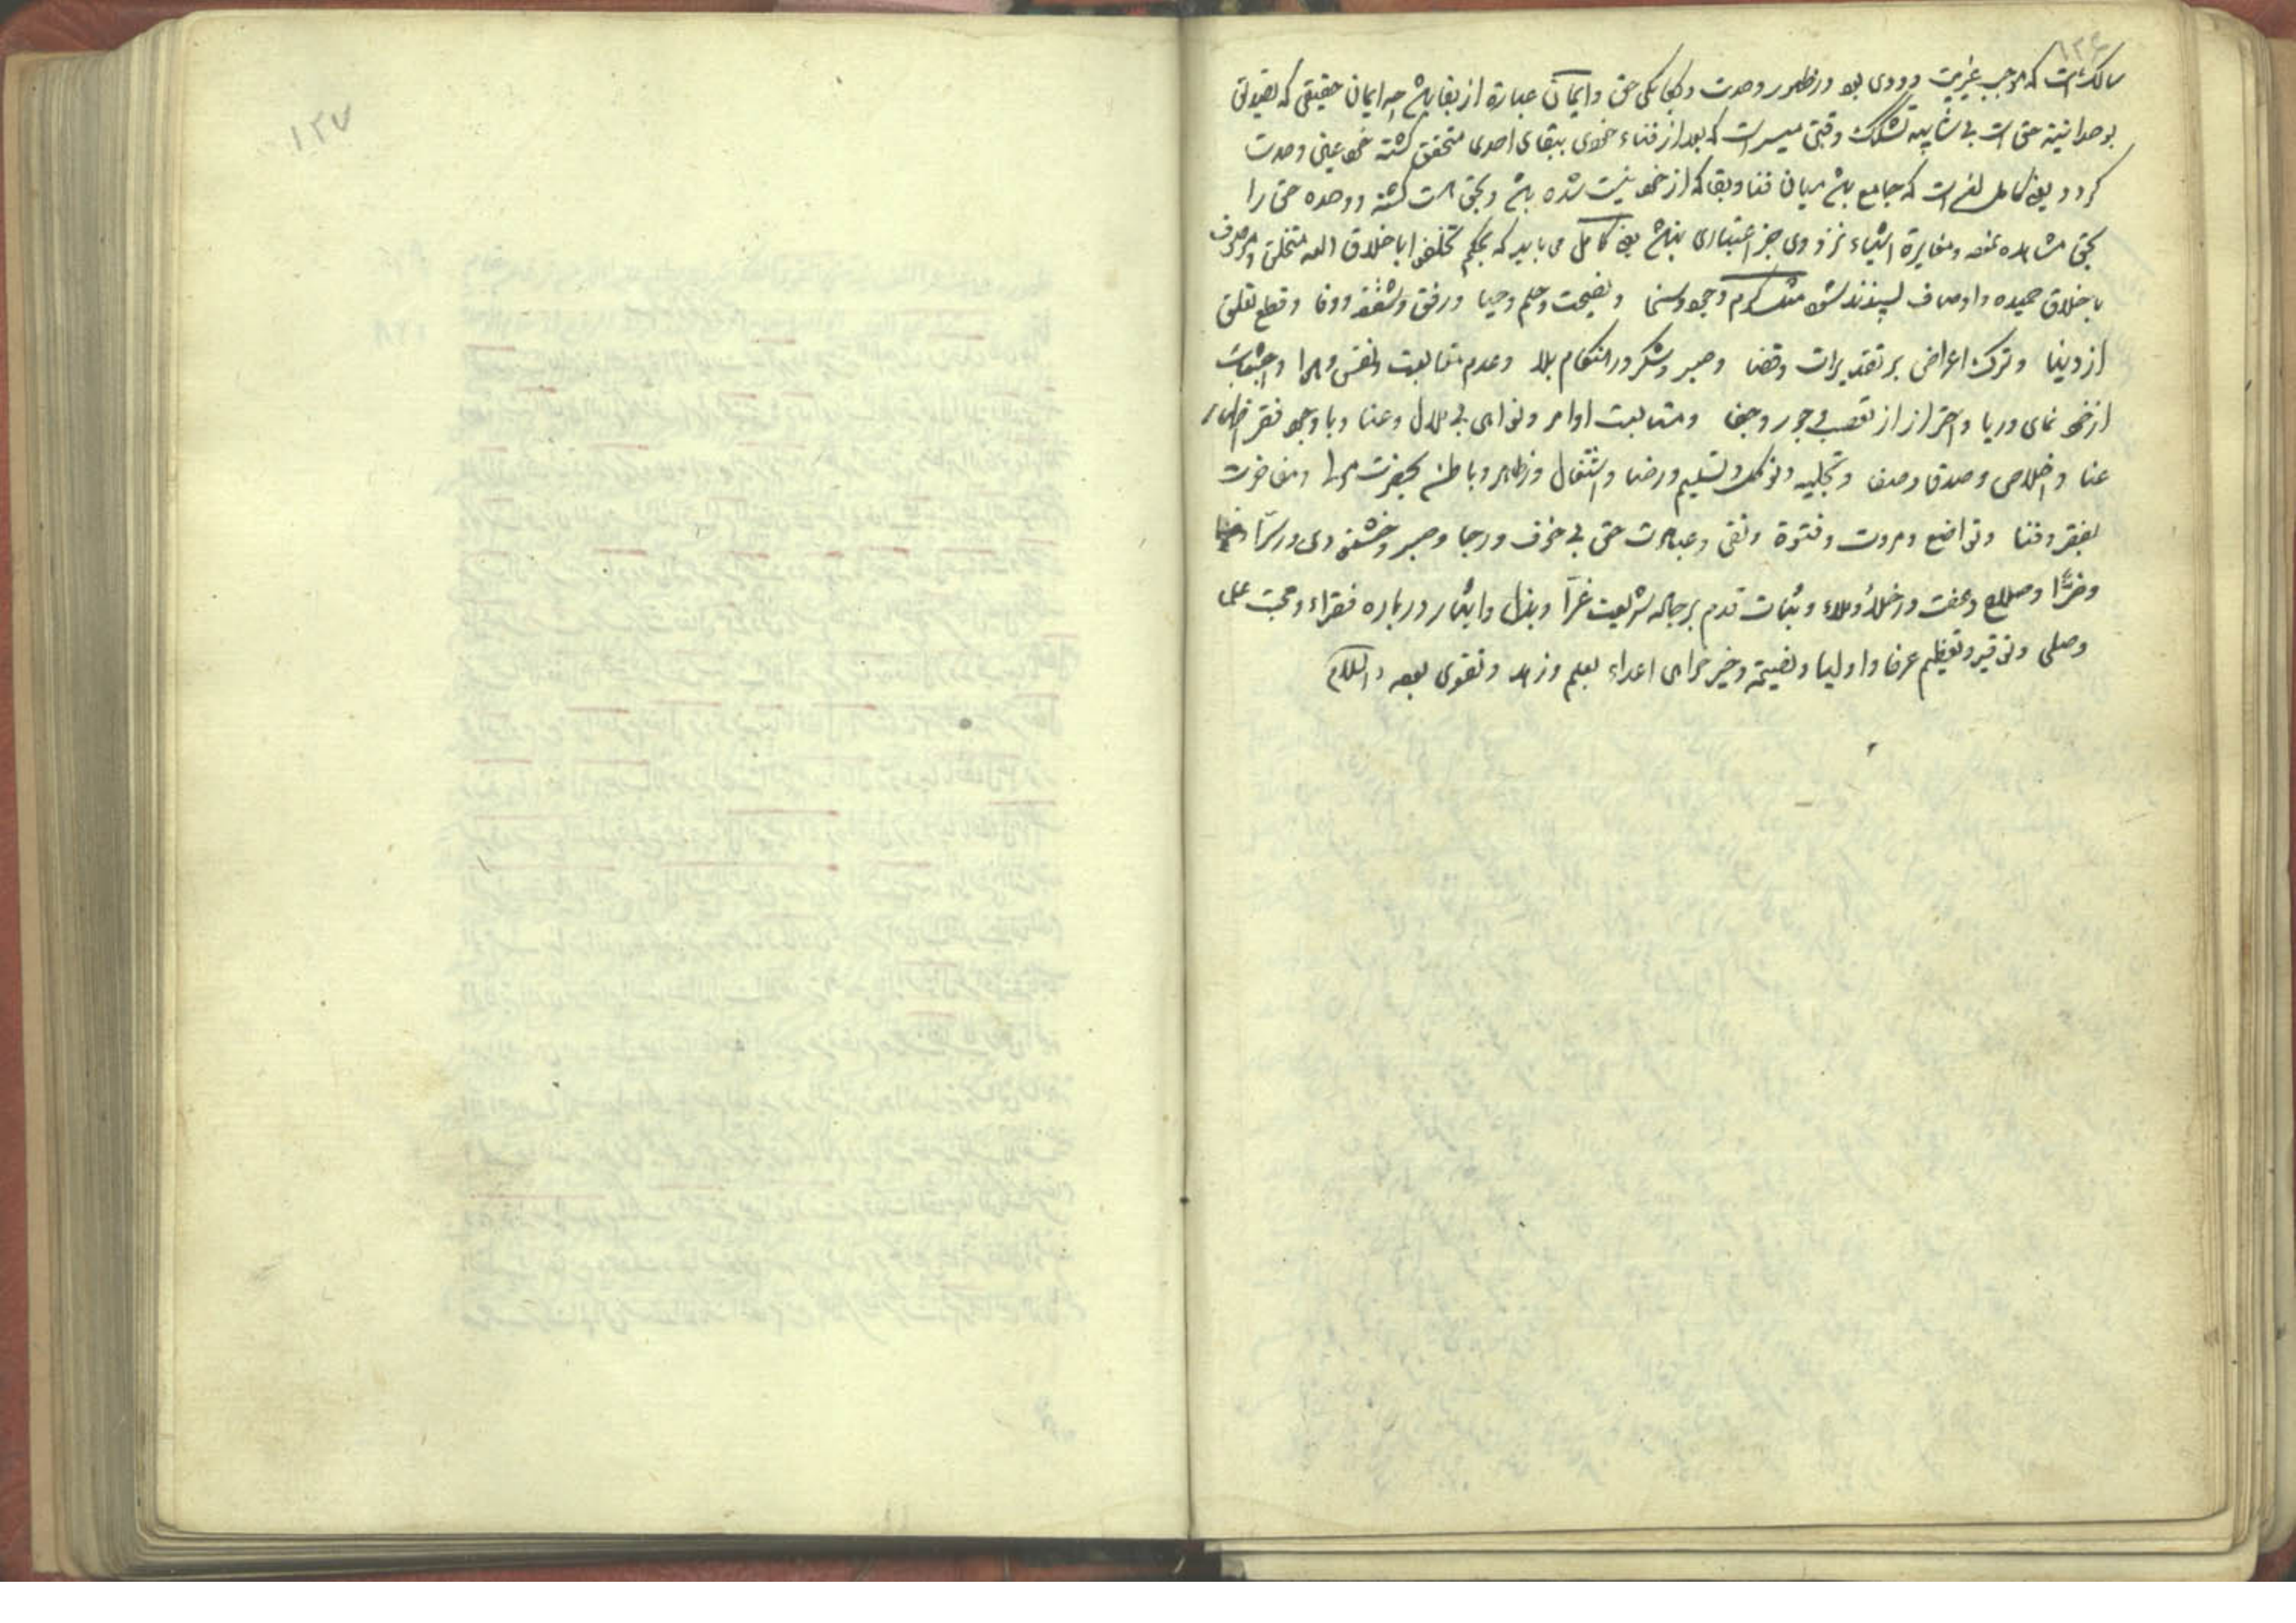 سالک است که موجب غیریت و دوی بود در ظهور وحدت و یکانکی حق و ایمان عبارة از بقا باشد چه ایمان حقیقی که تصدیق
بوحدانیة حق است بی شایبه تشکک وقتی میسر است که بعد از فناء خودی ببقای احدی متحقق کشته خود عین وحدت
کردد یعنی کامل است که جامع باشد میان فنا و بقا که از خود نیست شده باشد و بحق هست کشته و وحده حق را
بحق مشاهده نموده و مغایرة اشیاء نزد وی جز اعتباری نباشد یعنی کامل می باید که بحکم تخلقوا باخلاق الله متخلق و موصوف
باخلاق حمیده و اوصاف پسندیده شود مثل کرم و جود و سخا و نصیحت و حلم و حیا و رفق و شفقة و وفا و قطع تعلق
از دنیا و ترک اعراض بر تقدیرات و قضا و صبر و شکر در هنکام بلا و عدم متابعت نفس و هوا و اجتناب
از خود نمای و ریا و احتراز از تعصب و جور و جفا و متابعت اوامر و نواهی بی ملال و عنا و با وجود فقر اظهار
غنا و اخلاص و صدق و صفا و تجلیه و توکل و تسلیم و رضا و اشتغال در ظاهر و باطن بحضرت مولا و مفاخرت
بفقر و فنا و تواضع و مروت و فتوة و تقی و عبادت حق بی خوف و رجا و صبر و خشنودی در سرّا
و ضرّا و صلاح و عفت در خلاء و ملاء و ثبات قدم بر جاده شریعت غرّا و بذل و ایثار در باره فقراء و محبت علما
و صلحا و توقیر و تعظیم عرفا و اولیا و نصیحة و خیر خواهی اعداء بعلم و زهد و تقوی بود والسلام
۱۲۷